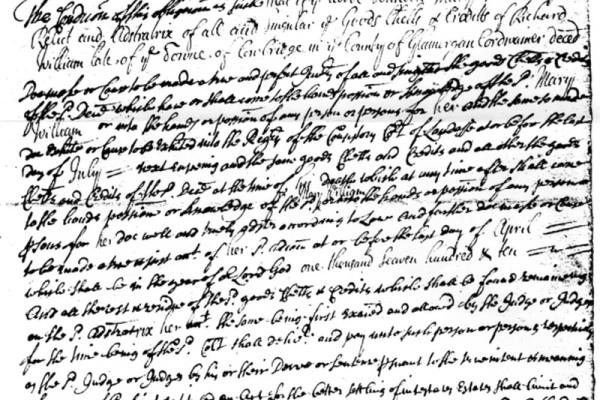 The Condicon of this obligacon is such that if
Relict and Admratrix of all and singular ye Goods Chells & Creditts of Richard
William late of ye Towne of Cowbridge in ye County of Glamorgan Cordwainer deced
Doe make or Cause to be made a true and perfect Invty of all and singular the goods Chells & Creditts
of the sd Decd which have or shall come to the hands possion or knowledge of the sd Mary
William or into the hands or possion of any person or persons for her and the same so made
doe Exhibite or Cause to be Exhibited into the Registry of the Consistory Crt of Landaffe at or before the last
day of July next ensueing and the same goods Chells and Creditts and all other the goods
Chells and Creditts of the sd Decd at the time of his Death which at any time after shall come
to the hands possion or knowledge of the sd Mary William or into the hands or possion of any person or
psons for her doe well and truely admster according to Law and further doe make or Cause
to be made a true & just acct of her sd admcon at or before the last day of April
which shall be in the year of or Lord God one thousand seaven hundred & ten
And all the rest & residue of the sd goods Chells & Creditts which shall be found remaineing
on the sd Admratrix her acct the same being first exaied and allowed by the Judge or Judges
for the time being of the sd Crt shall deliver and pay unto such person or persons respectively
as the sd Judge or Judges by his or their Decree or sentence psuant to the true intent & meaning
Act for the better setling of intestates Estates shall limit and